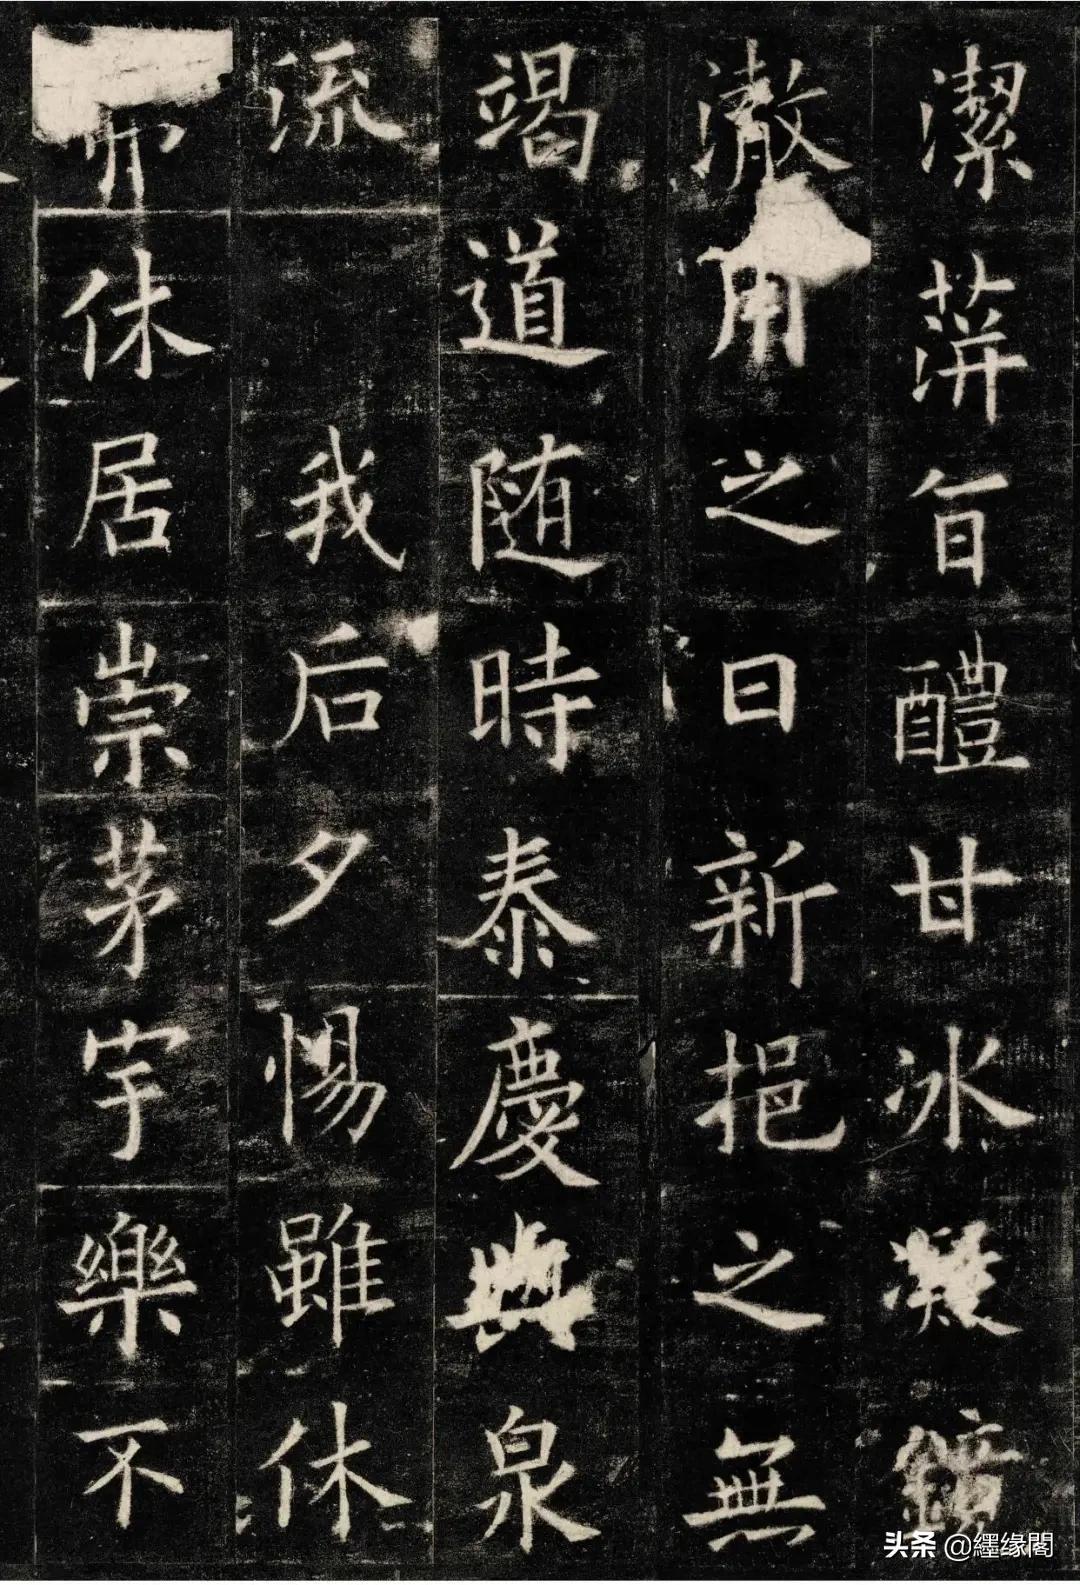 潔䓑旨醴甘冰凝鏡
澈用之日新挹之無
竭道随時泰慶與泉
流 我后夕惕雖休
弗休居崇茅宇樂不
头条 @纒缘閣